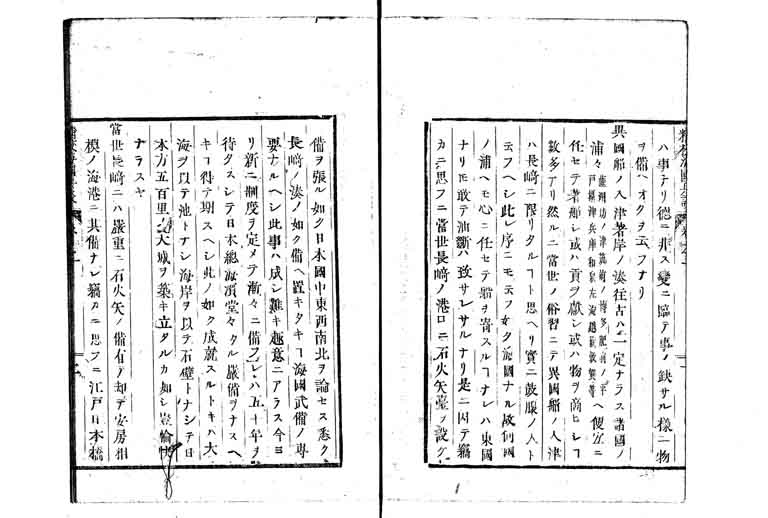 ハ事ナリ德ニ非ス變ニ臨テ事ノ缺サル樣ニ物
ヲ備ヘオクヲ云フナリ
異國船ノ入津著岸ノ湊往古ハ一定ナラス諸國ノ
浦々
ヘ便宜ニ
任セテ著船シ或ハ貢ヲ獻シ或ハ物ヲ商ヒシヿ
數多アリ然ルニ當世ノ俗習ニテ異國船ノ入津
ハ長崎ニ限リタルヿト思ヘリ實ニ鼓腹ノ人ト
云フヘシ此レ序ニモ云フ如ク海國ナル故何國
ノ浦ヘモ心ニ任セテ船ヲ寄スルヿナレハ東國
ナリモ敢テ油斷ハ致サレサルナリ是ニ因テ竊
カニ思フニ當世長崎ノ港口ニ石火矢臺ノ設ケ
備ヲ張ル如ク日本國中東西南北ヲ論セス悉ク
長崎ノ湊ノ如ク備ヘ置キタキヿ海國武備ノ專
要ナルヘシ此事ハ成シ難キ趣意ニアラス今ヨ
リ新ニ制度ヲ定メテ漸々ニ備フレハ五十年ヲ
待タスシテ日本總海濱堂々タル嚴備ヲナスヘ
キヿ得テ期スヘシ此ノ如ク成就スルトキハ大
海ヲ以テ池トナシ海岸ヲ以テ石壁トナシテ日
本方五百里ノ大城ヲ築キ立タルカ如シ豈愉快
ナラスヤ
當世長崎ニハ嚴重ニ石火矢ノ備有テ却テ安房相
模ノ海港ニ其備ナシ竊カニ思フニ江戸日本橋